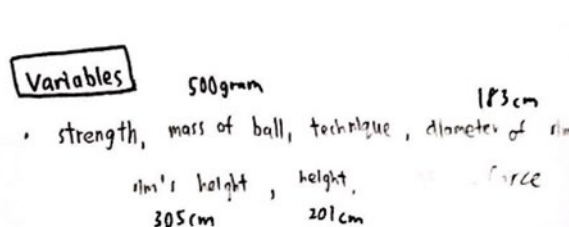 Variables
500gram 183cm
• strength, mass of ball, technique, diameter of
rim's height, height, force
305cm 201cm